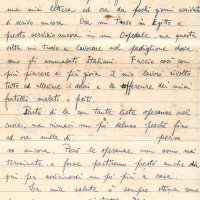 mia lettera ed ora da pochi giorni arrivato
di servizio ancora. Ora mi trovo in Egitto e
presto servizio ancora in un Ospedale, ma questa
volta mi trovo a lavorare nel padiglione dove
sono gli ammalati Italiani. Faccio così con
più piacere e più gioia il mio lavoro rivolto
tutto ad alleviare i dolori e le sofferenze dei miei
fratelli malati e feriti.
Partii da la con tante liete speranze nel
cuore, ma rimasi un po' deluso perché fino
ad ora nulla di
so ancora. Però le speranze non sono mai
terminate, e forse partiremo presto anche da
qui per avvicinarci un po' più a casa.
La mia salute è sempre ottima come